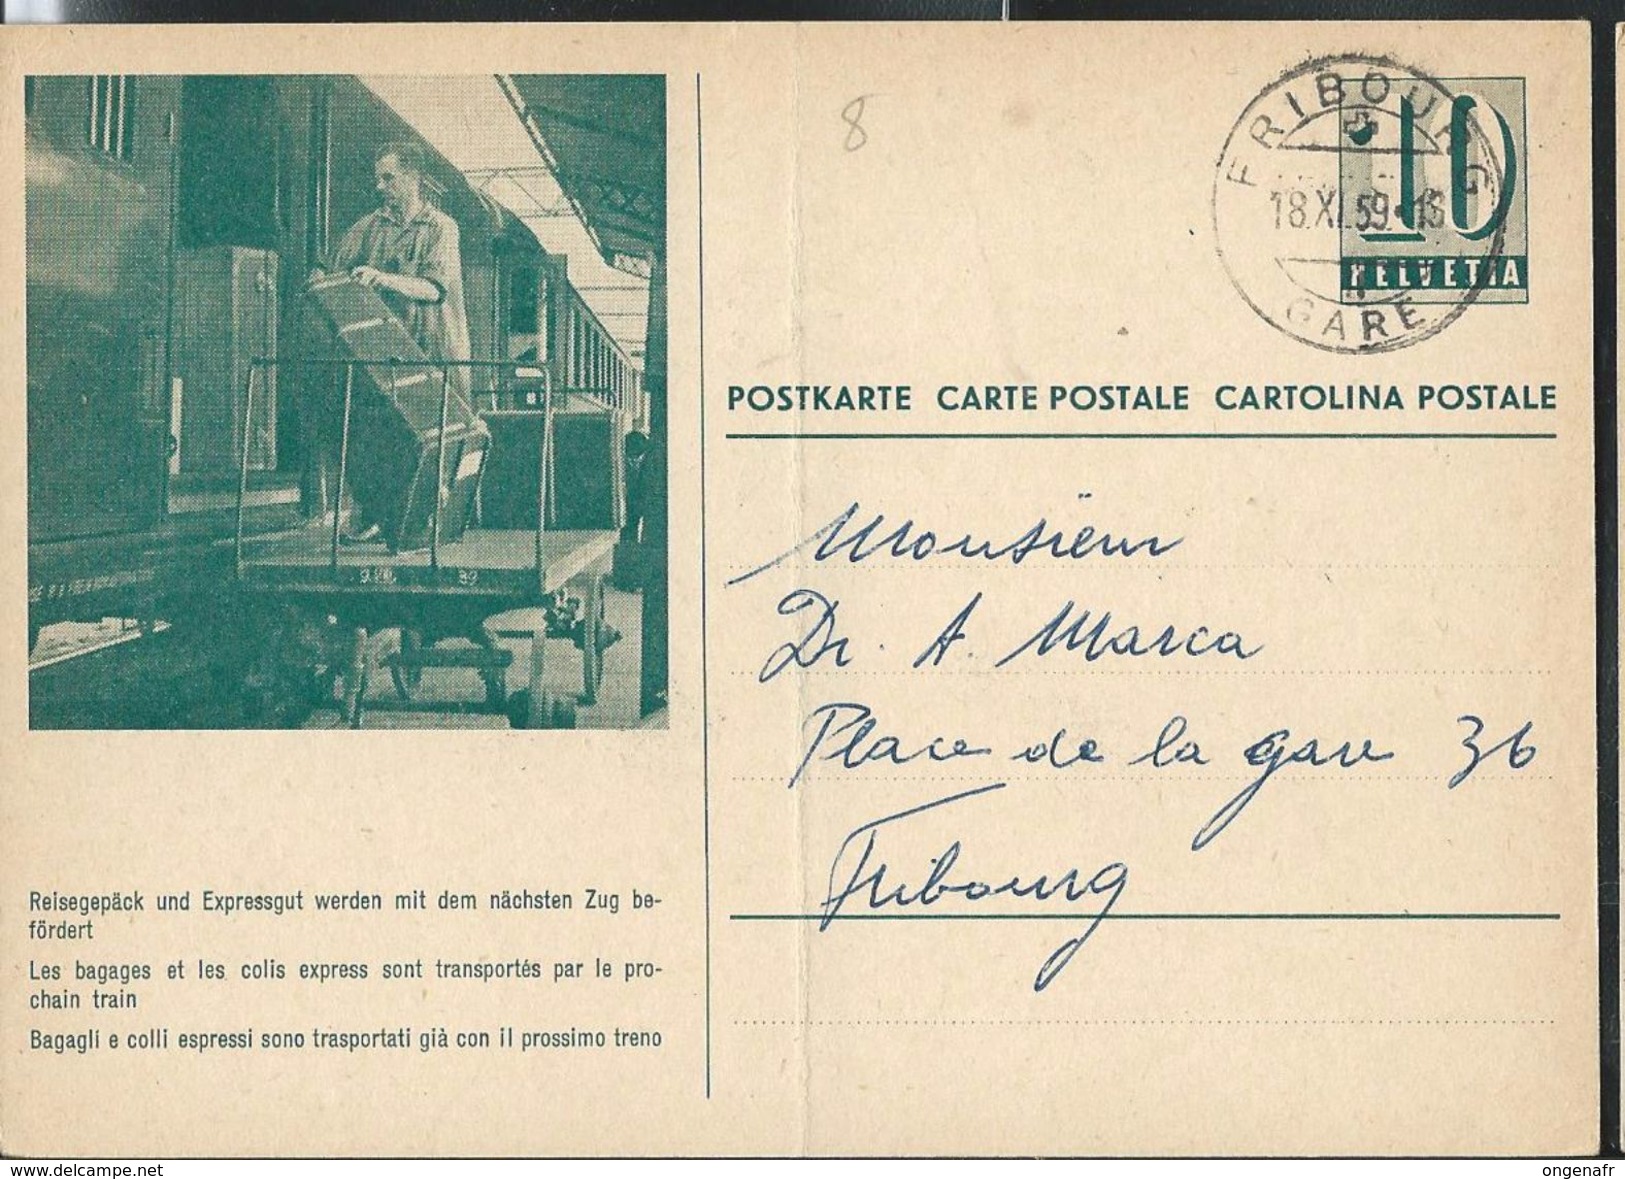 8
FRIBOURG
18.XI.59
GARE
10
HELVETIA
POSTKARTE CARTE POSTALE CARTOLINA POSTALE
Monsieur
Dr. A. Marca
Place de la gare 36
Fribourg
89
Reisegepäck und Expressgut werden mit dem nächsten Zug be-
fördert
Les bagages et les colis express sont transportés par le pro-
chain train
Bagagli e colli espressi sono trasportati già con il prossimo treno
www.delcampe.net
ongenafr